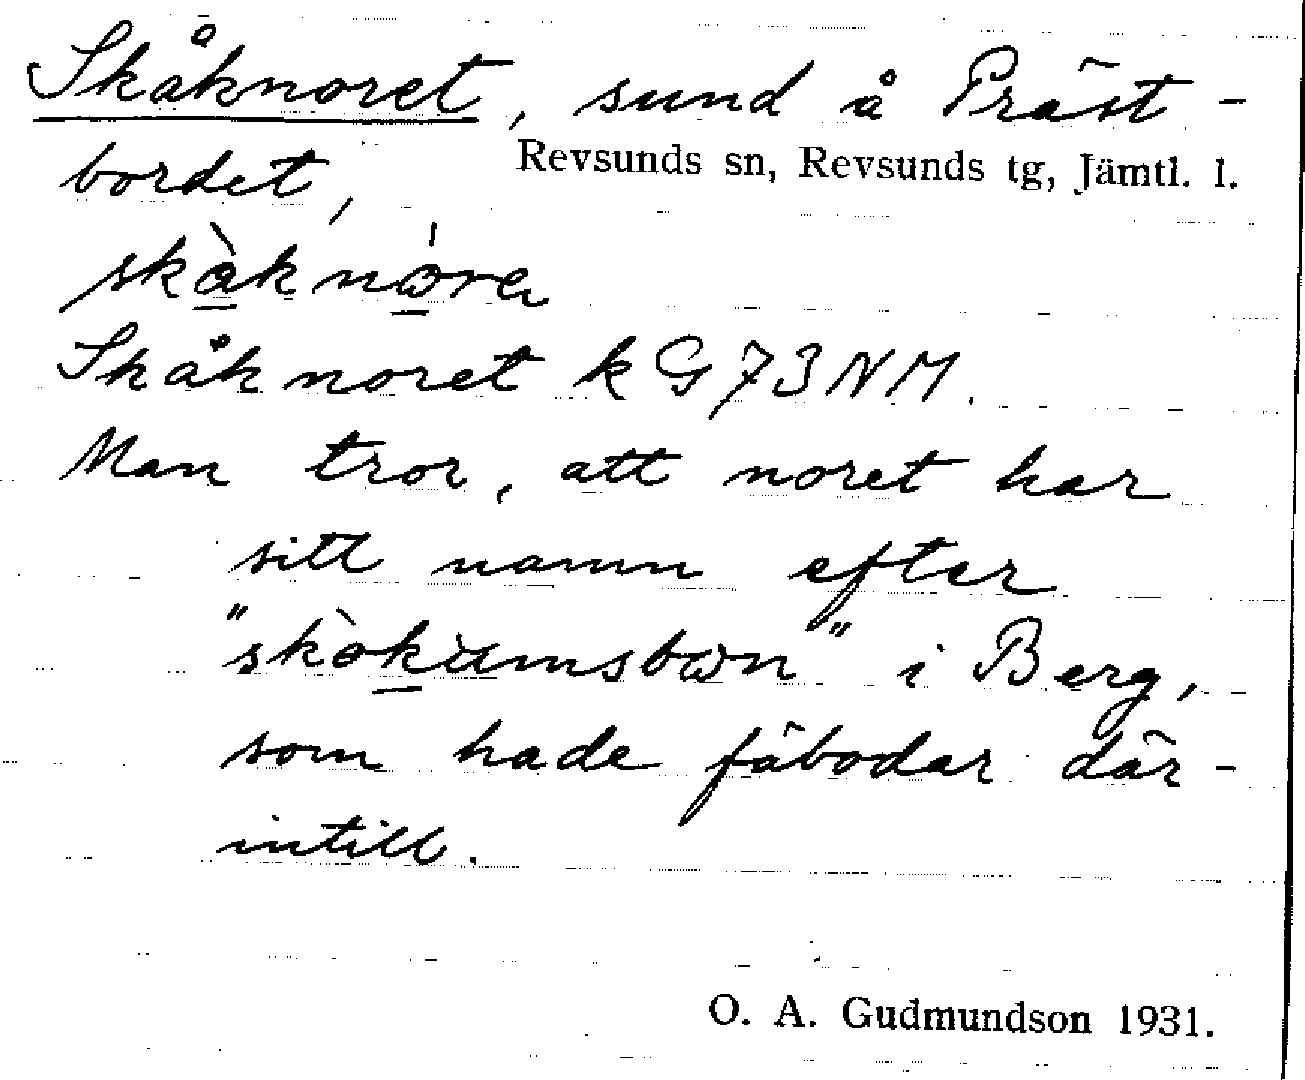 Skåknoret, sund å Präst-
bordet,
Revsunds sn, Revsunds tg, Jämtl. l.
skàknóre
Skåknoret k G73NM.
Man tror, att noret har
sitt namn efter
"skòkumsbωn" i Berg,
som hade fäbodar där-
intill.
O. A. Gudmundson 1931.